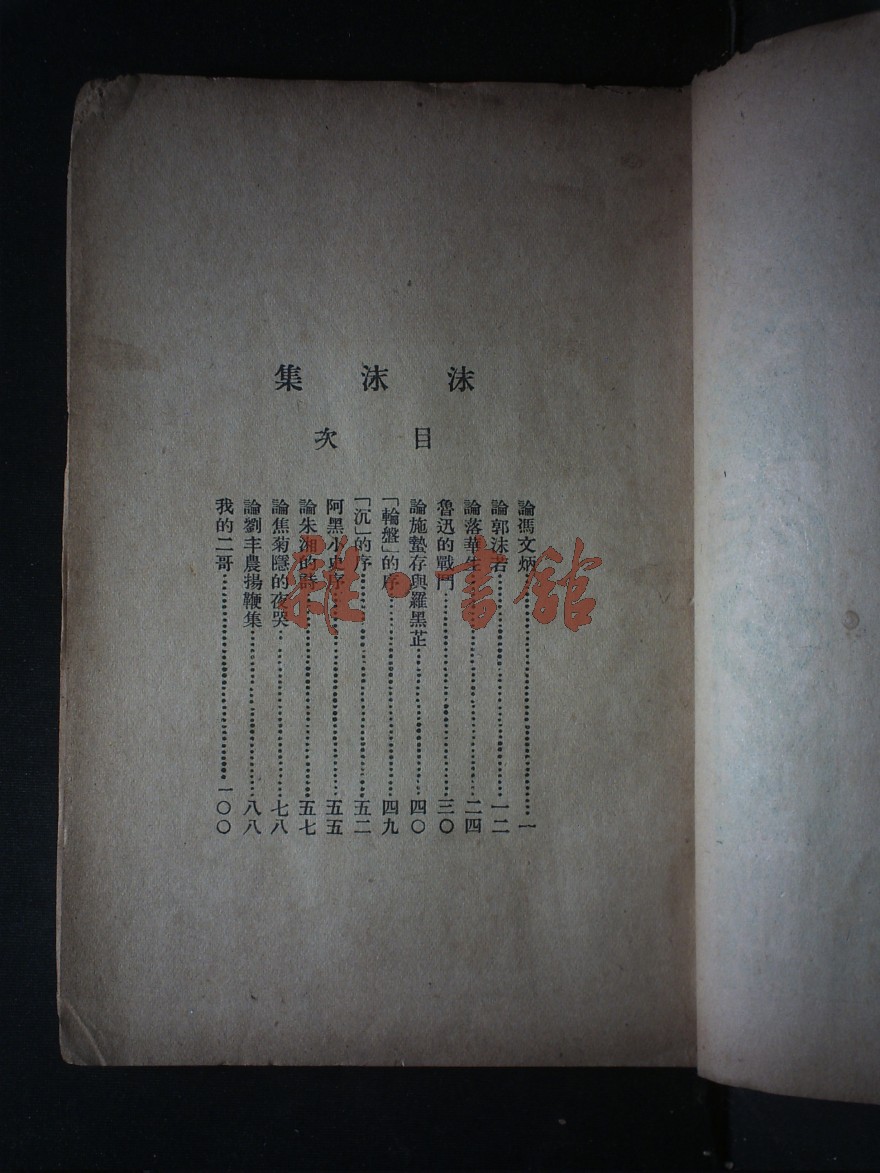 沫沫集
目次
論馮文炳……一
論郭沫若……一二
論落華生……二四
魯迅的戰鬥……三〇
論施蟄存與羅黑芷……四〇
「輪盤」的序……四九
「沉」的序……五二
阿黑小史序……五五
論朱湘的詩……五七
論焦菊隱的夜哭……七八
論劉半農揚鞭集……八八
我的二哥……一〇〇
雜·書館